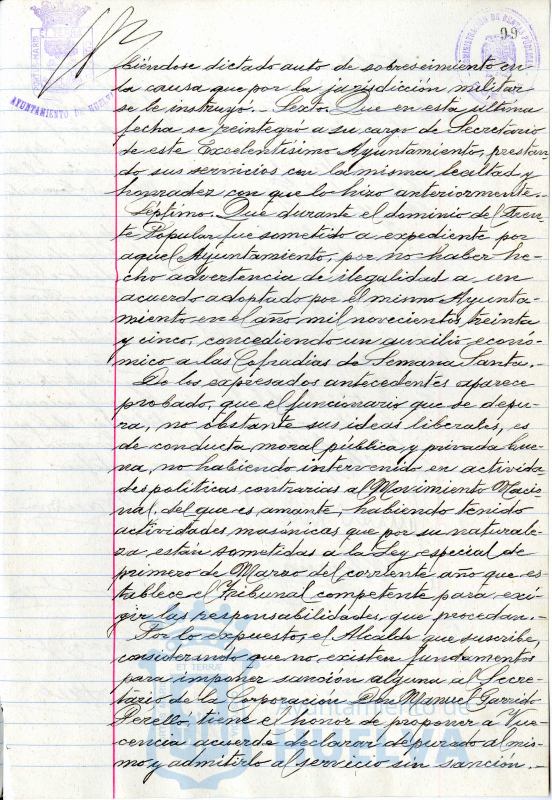 99
AYUNTAMIENTO DE HUELVA
biéndose dictado auto de sobreseimiento en
la causa que por la jurisdicción militar
se le instruyó.- Sexto. Que en esta última
fecha se reintegro a su cargo de Secretario
de este Excelentisimo Ayuntamiento, prestan-
do sus servicios con la misma lealtad y
honradez con que lo hizo anteriormente.-
Séptimo. Que durante el dominio del Fren-
te Popular fué sometido a expediente por
aquel Ayuntamiento, por no haber he-
cho advertencia de ilegalidad a un
acuerdo adoptado por el mismo Ayunta-
miento en el año mil novecientos treinta
y cinco, concediendo un auxilio econó-
mico a las Cofradias de Semana Santa.-
De los expresados antecedentes aparece
probado, que el funcionario que se depu-
ra, no obstante sus ideas liberales, es
de conducta moral, pública y privada bue-
na, no habiendo intervenido en activida
des politicas contrarias al Movimiento Nacio
nal, del que es amante, habiendo tenido
actividades masónicas que por su naturale-
za están sometidas a la Ley especial de
primero de Marzo del corriente año que es-
tablece el Tribunal competente para exi-
gir las responsabilidades que procedan.-
Por lo expuesto, el Alcalde que suscribe,
considerando que no existen fundamentos
para imponer sanción alguna al Secre-
tario de la Corporación Don Manuel Garrido
Perelló, tiene el honor de proponer a Vue
cencia acuerde declarar depurado al mis-
mo y admitirlo al servicio sin sanción.-
Ayuntamiento de
HUELVA